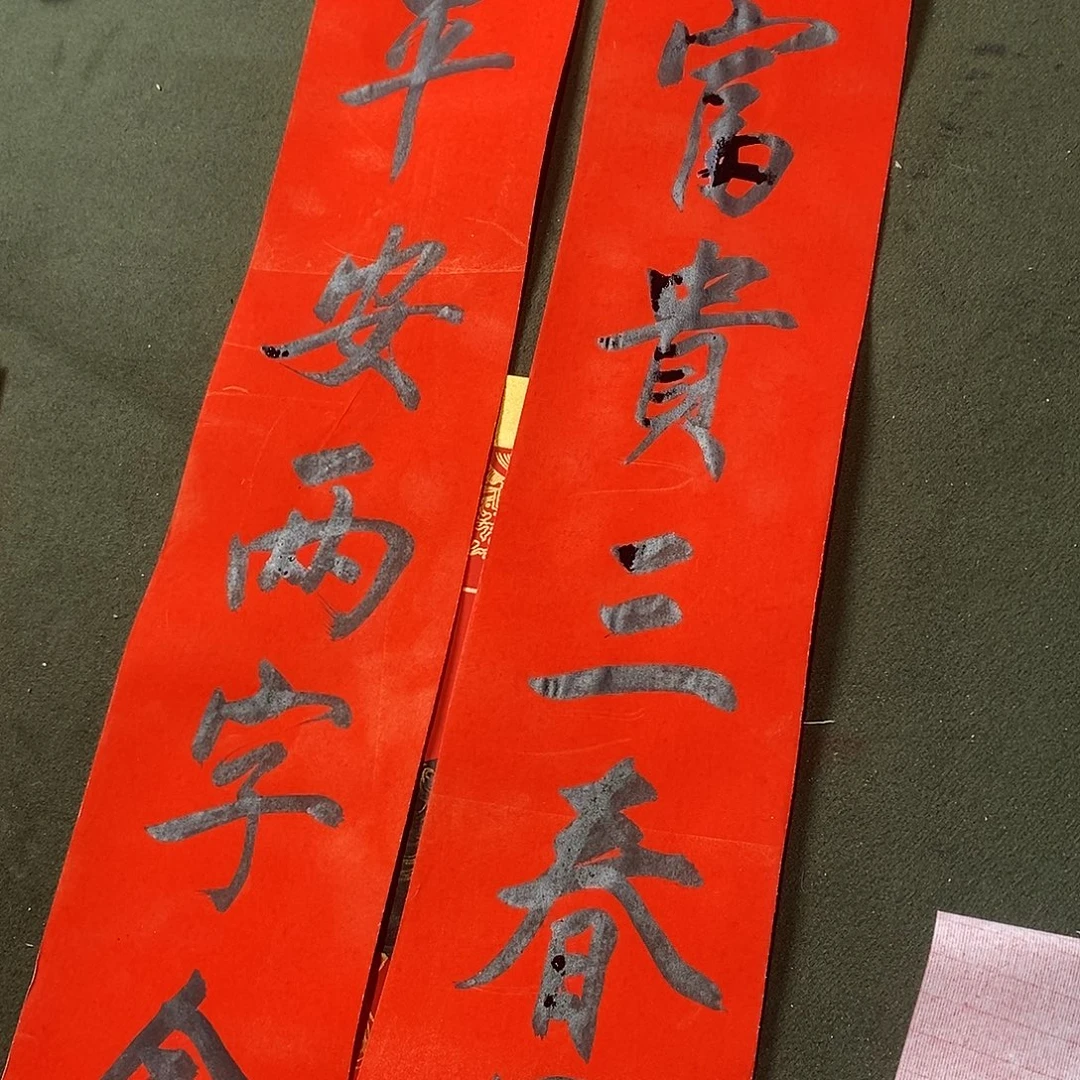 富貴三春
平安两字